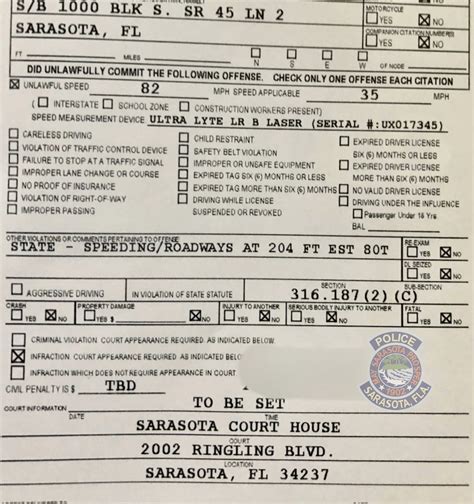 S/B 1000 BLK S. SR 45 LN 2
MOTORCYCLE
YES ☒ NO
SARASOTA, FL
COMPANION CITATION NUMBER(S)
YES ☒ NO
FT MILES N S E W OF NODE
DID UNLAWFULLY COMMIT THE FOLLOWING OFFENSE. CHECK ONLY ONE OFFENSE EACH CITATION
☒ UNLAWFUL SPEED 82 MPH SPEED APPLICABLE 35 MPH
( ☐ INTERSTATE ☐ SCHOOL ZONE ☐ CONSTRUCTION WORKERS PRESENT)
SPEED MEASUREMENT DEVICE ULTRA LYTE LR B LASER (SERIAL #:UX017345)
☐ CARELESS DRIVING ☐ CHILD RESTRAINT ☐ EXPIRED DRIVER LICENSE
☐ VIOLATION OF TRAFFIC CONTROL DEVICE ☐ SAFETY BELT VIOLATION SIX (6) MONTHS OR LESS
☐ FAILURE TO STOP AT A TRAFFIC SIGNAL ☐ IMPROPER OR UNSAFE EQUIPMENT ☐ EXPIRED DRIVER LICENSE
☐ IMPROPER LANE CHANGE OR COURSE ☐ EXPIRED TAG SIX (6) MONTHS OR LESS MORE THAN SIX (6) MONTHS
☐ NO PROOF OF INSURANCE ☐ EXPIRED TAG MORE THAN SIX (6) MONTHS ☐ NO VALID DRIVER LICENSE
☐ VIOLATION OF RIGHT-OF-WAY ☐ DRIVING WHILE LICENSE ☐ DRIVING UNDER THE INFLUENCE
☐ IMPROPER PASSING SUSPENDED OR REVOKED ☐ Passenger Under 18 Yrs
BAL
OTHER VIOLATIONS OR COMMENTS PERTAINING TO OFFENSE
RE-EXAM
STATE - SPEEDING/ROADWAYS AT 204 FT EST 80T
☐ YES ☒ NO
DL SEIZED
☐ YES ☒ NO
☐ AGGRESSIVE DRIVING IN VIOLATION OF STATE STATUTE SECTION 316.187(2)(C) SUB-SECTION
CRASH PROPERTY DAMAGE INJURY TO ANOTHER SERIOUS BODILY INJURY TO ANOTHER FATAL
☐ YES ☒ NO ☐ YES ☒ NO ☐ YES ☒ NO ☐ YES ☒ NO ☐ YES ☒ NO
☐ CRIMINAL VIOLATION. COURT APPEARANCE REQUIRED. AS INDICATED BELOW.
☒ INFRACTION. COURT APPEARANCE REQUIRED. AS INDICATED BELOW.
☐ INFRACTION WHICH DOES NOT REQUIRE APPEARANCE IN COURT.
POLICE
SARASOTA, FLA.
CIVIL PENALTY IS $ TBD
TO BE SET
COURT INFORMATION DATE TIME
SARASOTA COURT HOUSE
COURT
2002 RINGLING BLVD.
LOCATION
SARASOTA, FL 34237